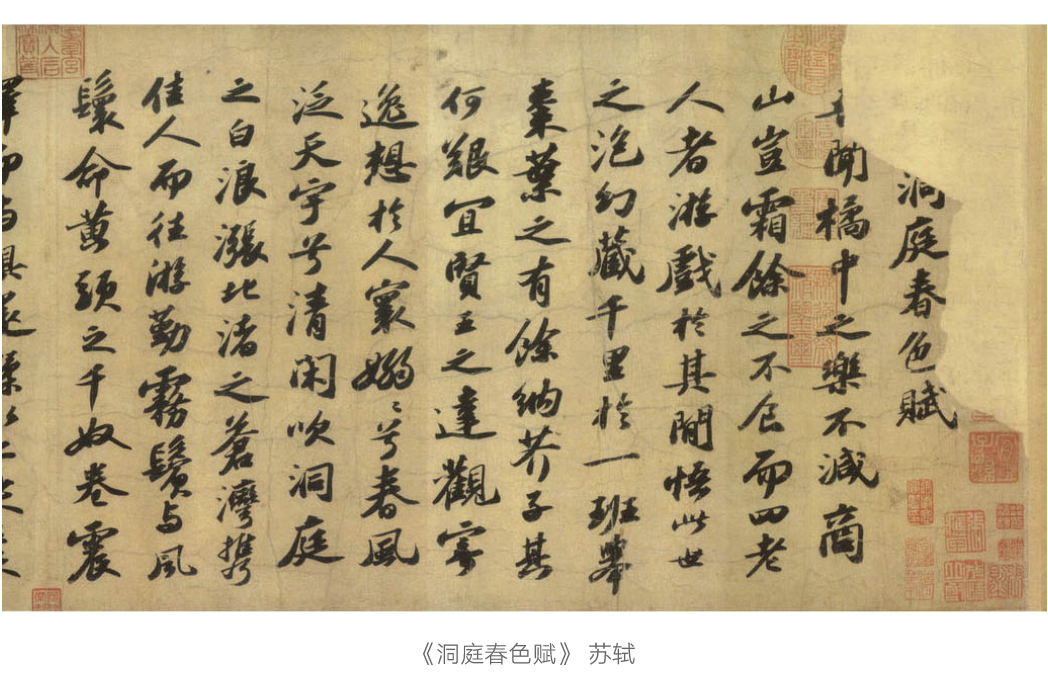 洞庭春色賦
聞橘中之樂不減商
山豈霜餘之不食而四老
人者游戲於其間悟此世
之泡幻藏千里於一班舉
棗葉之有餘納芥子其
何艱宜賢王之達觀寄
逸想於人寰嫋〻兮春風
泛天宇兮清閑吹洞庭
之白浪漲北渚之蒼灣携
佳人而往游勤霧鬢与風
鬟命黄頭之千奴卷震
《洞庭春色赋》 苏轼